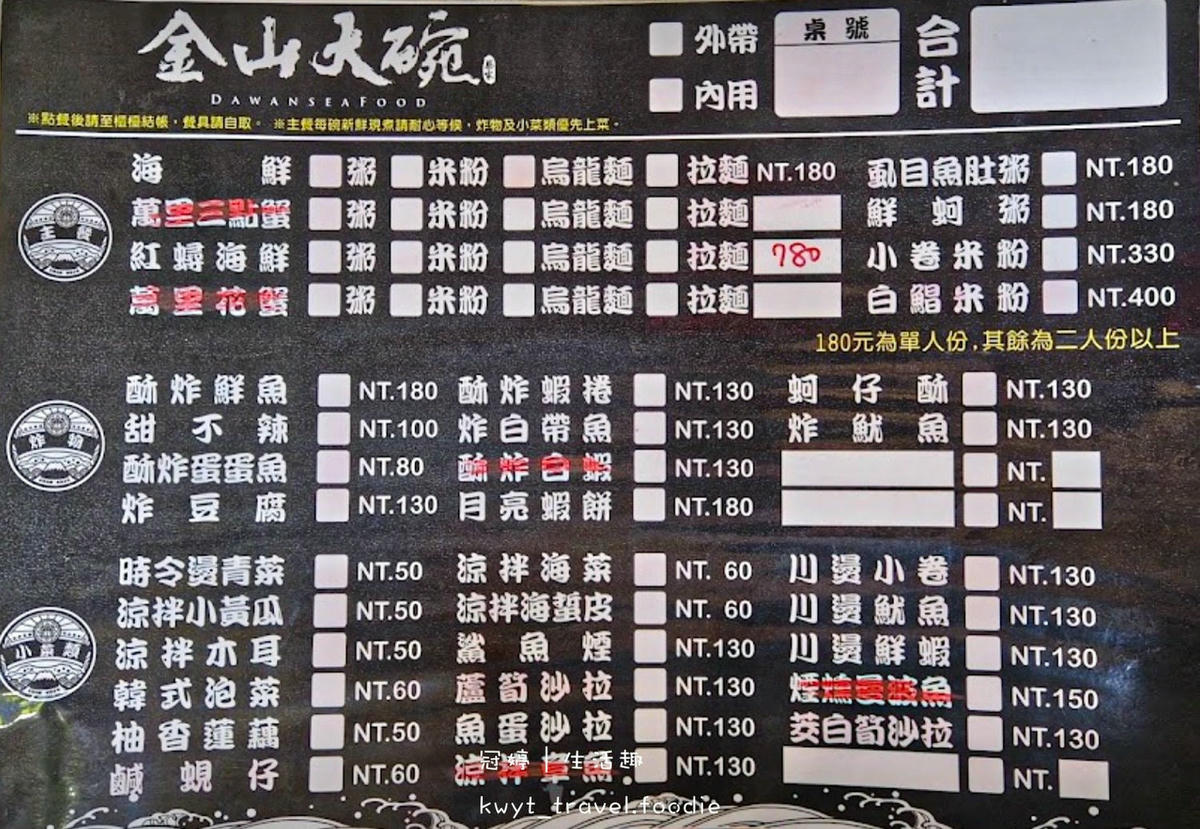 金山大碗
DAWANSEAFOOD
外帶
內用
桌號
合計
※點餐後請至櫃檯結帳，餐具請自取。 ※主餐每碗新鮮現煮請耐心等候，炸物及小菜類優先上菜。
主餐
海鮮 粥 米粉 烏龍麵 拉麵 NT.180 虱目魚肚粥 NT.180
萬里三點蟹 粥 米粉 烏龍麵 拉麵 鮮蚵粥 NT.180
紅蟳海鮮 粥 米粉 烏龍麵 拉麵 780 小卷米粉 NT.330
萬里花蟹 粥 米粉 烏龍麵 拉麵 白鯧米粉 NT.400
180元為單人份,其餘為二人份以上
炸物
酥炸鮮魚 NT.180 酥炸蝦捲 NT.130 蚵仔酥 NT.130
甜不辣 NT.100 炸白帶魚 NT.130 炸魷魚 NT.130
酥炸蛋蛋魚 NT.80 酥炸白蝦 NT.130 NT.
炸豆腐 NT.130 月亮蝦餅 NT.180 NT.
小菜類
時令燙青菜 NT.50 涼拌海菜 NT. 60 川燙小卷 NT.130
涼拌小黃瓜 NT.50 涼拌海蜇皮 NT. 60 川燙魷魚 NT.130
涼拌木耳 NT.50 鯊魚煙 NT.130 川燙鮮蝦 NT.130
韓式泡菜 NT.60 蘆筍沙拉 NT.130 煙燻曼波魚 NT.150
柚香蓮藕 NT.50 魚蛋沙拉 NT.130 茭白筍沙拉 NT.130
鹹蜆仔 NT.60 涼拌章魚 NT.130 NT.
冠婷｜生活趣
kwyt_travel.foodie